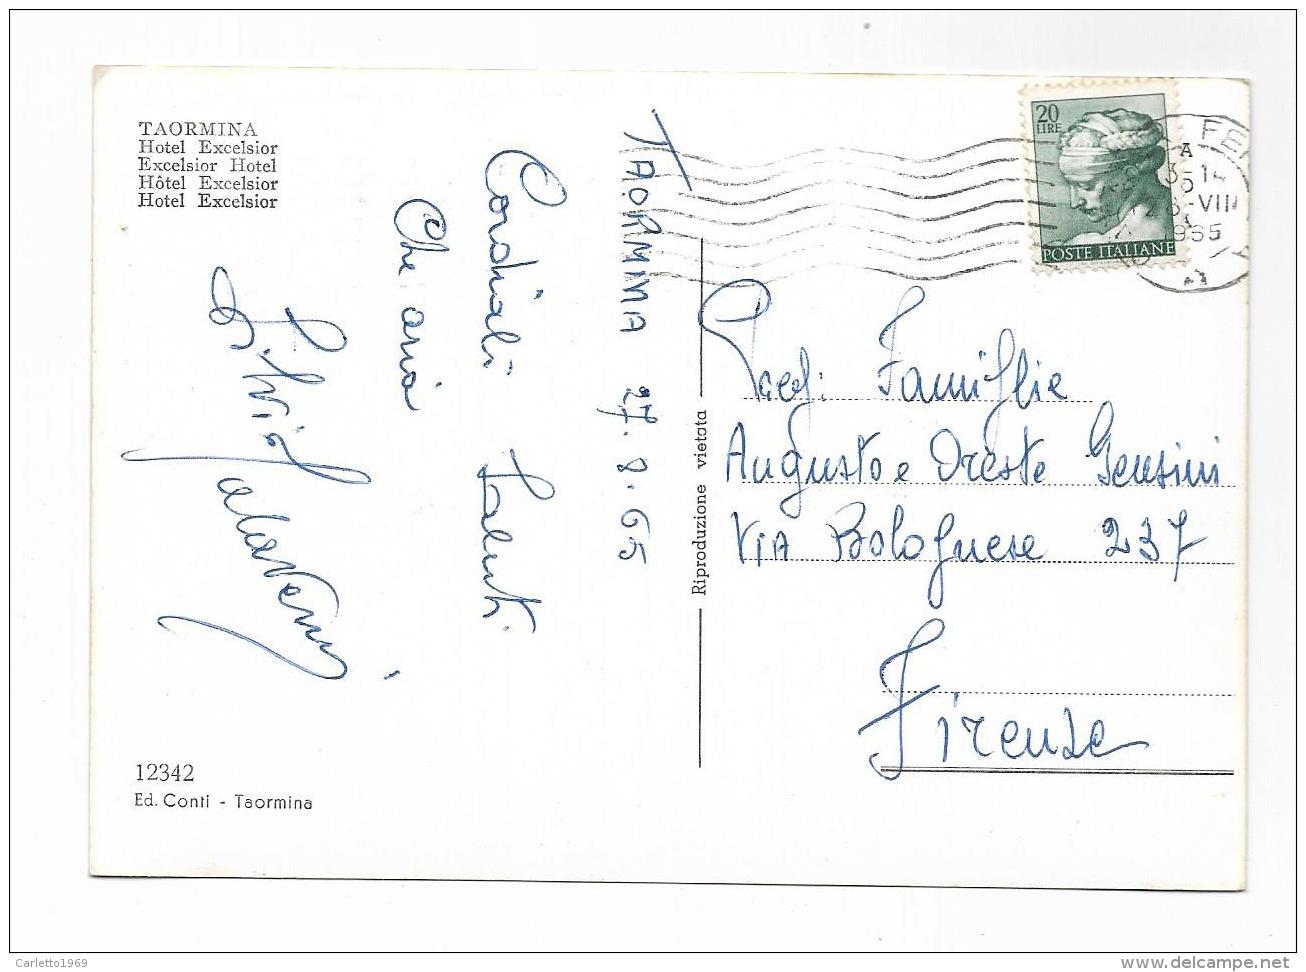 TAORMINA
Hotel Excelsior
Excelsior Hotel
Hôtel Excelsior
Hotel Excelsior
TAORMINA 27.8.65
Cordiali Saluti
Riproduzione vietata
20
LIRE
POSTE ITALIANE
A
14
VIII
1965
Famiglie
Augusto e Oreste Gensini
VIA Bolognese 237
Firenze
12342
Ed. Conti - Taormina
Carletto1969
delcampe.net